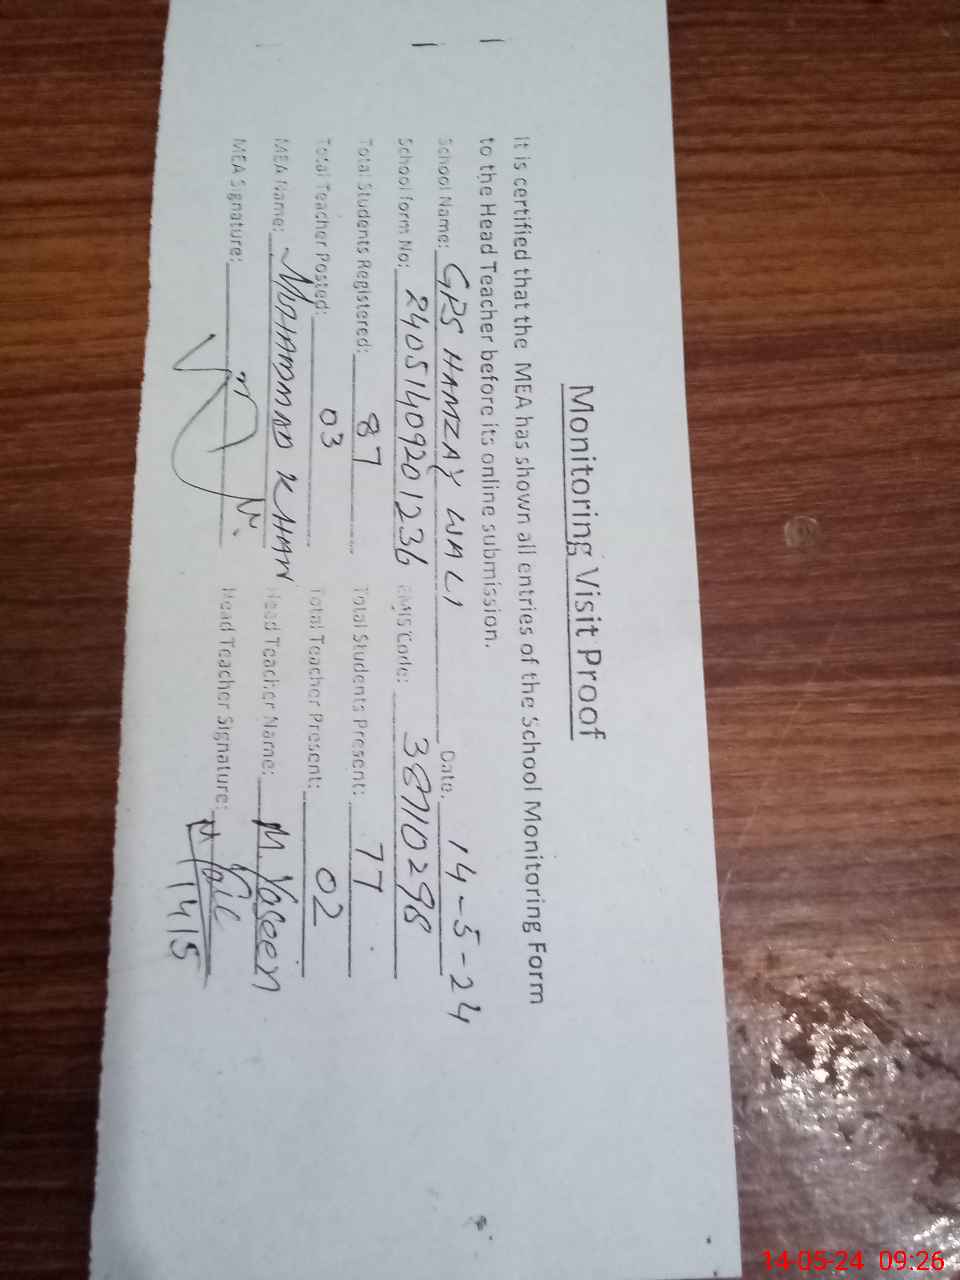 Monitoring Visit Proof
It is certified that the MEA has shown all entries of the School Monitoring Form
to the Head Teacher before its online submission.
School Name: GPS HAMZAY WALI Date: 14-5-24
School form No: 24051409201236 EMIS Code: 38710298
Total Students Registered: 87 Total Students Present: 77
Total Teacher Posted: 03 Total Teacher Present: 02
MEA Name: MUHAMMAD KHAN Head Teacher Name: M. Yaseen
MEA Signature: Head Teacher Signature:
1415
14-05-24 09:26